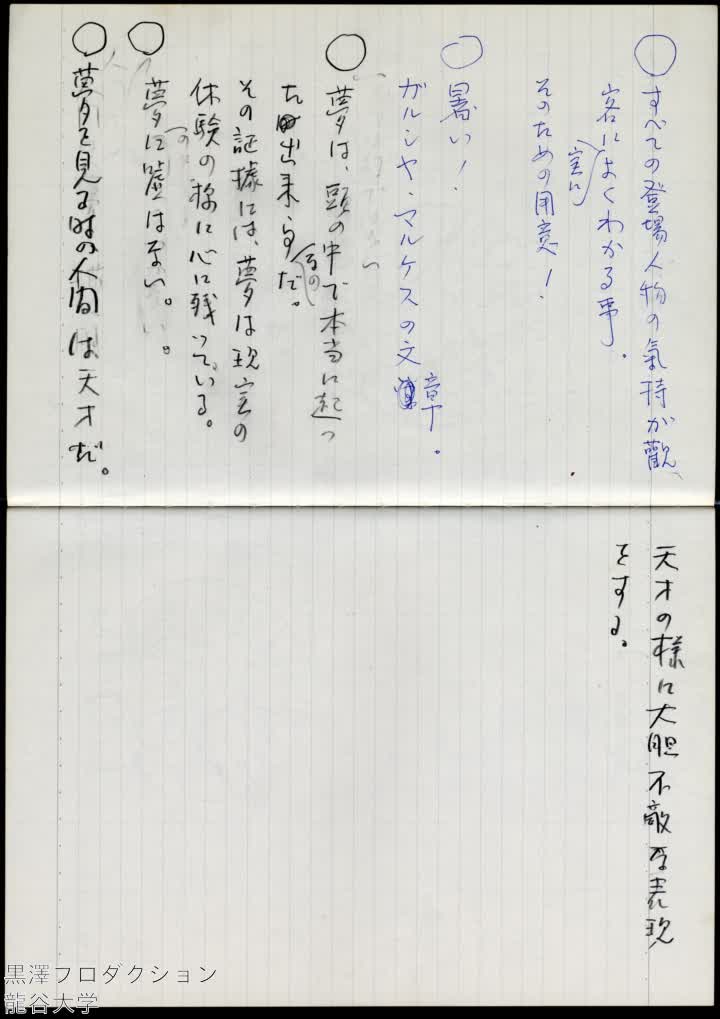 ○すべての登場人物の氣持が觀
客によくわかる事。
実に
そのための用意！
○暑い！
ガルシヤ・マルケスの文章。
○夢は、頭の中で本当に起っ
た出来事
なの
だ。
その証據には、夢は現実の
体験の様に心に残っている。
○夢に嘘はない。
○夢を見る時の人間は天才だ。
天才の様に大胆不敵な表現
をする。
黒澤プロダクション
龍谷大学